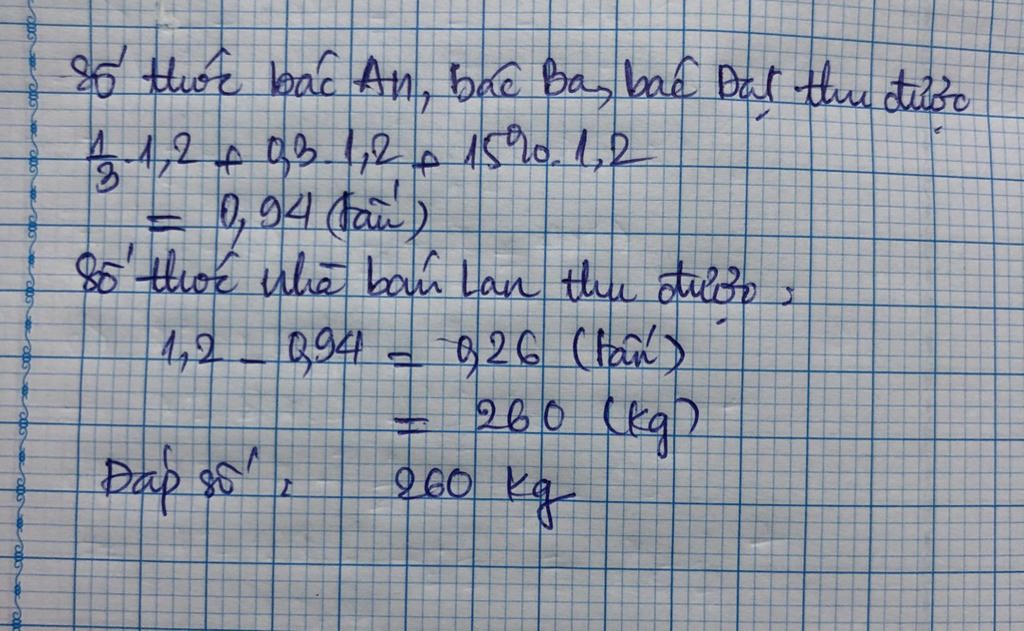 Số thóc bác An, bác Ba, bác Đạt thu được
1/3 . 1,2 + 0,3 . 1,2 + 15% . 1,2
= 0,94 (tấn)
Số thóc nhà bạn Lan thu được :
1,2 - 0,94 = 0,26 (tấn)
= 260 (kg)
Đáp số : 260 kg